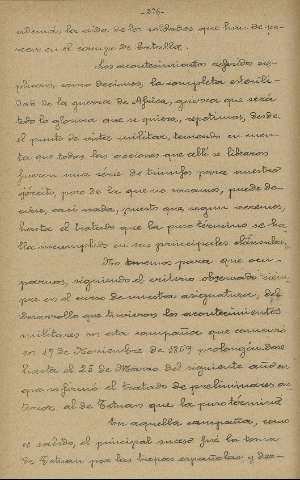 -276-
además, la vida de los soldados que han de pe-
lear en el campo de batalla.
Los acontecimientos referidos
, como decimos, la completa esterili-
dad de la guerra de Africa, guerra que será
todo lo gloriosa que se quiera, repetimos, desde
el punto de vista militar, teniendo en cuen-
ta que todas las acciones que allí se libraron
fueron una serie de triunfos para nuestro
ejército, pero de la que no sacamos, puede de-
cirse, casi nada, puesto que, segun veremos,
hasta el tratado que la puso término se ha-
lla incumplido en sus principales cláusulas.
No tenemos para que ocu-
parnos, siguiendo el criterio observado siem-
pre en el curso de nuestra asignatura, del
desarrollo que tuvieron los acontecimientos
militares en esta campaña que comenzó
en 19 de Noviembre de 1859 prolongándose
hasta el 25 de Marzo del siguiente año en
que se firmó el tratado de preliminares an-
terior al de Tetuan que la puso término
En aquella campaña, como
es sabido, el principal suceso fué la toma
de Tetuan por las tropas españolas y des-